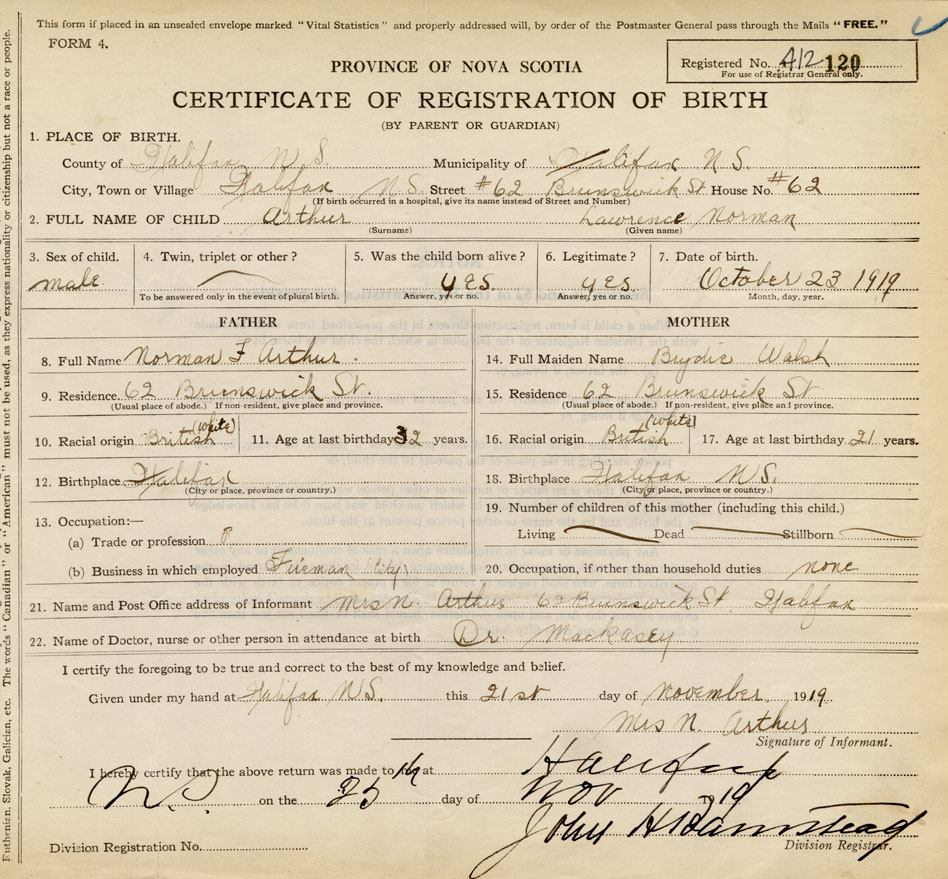 This form if placed in an unsealed envelope marked "Vital Statistics" and properly addressed will, by order of the Postmaster General pass through the Mails "FREE."
FORM 4.
Registered No. 412 120
For use of Registrar General only.
PROVINCE OF NOVA SCOTIA
CERTIFICATE OF REGISTRATION OF BIRTH
(BY PARENT OR GUARDIAN)
1. PLACE OF BIRTH.
County of Halifax N.S. Municipality of Halifax N S.
City, Town or Village Halifax N.S. Street #62 Brunswick St House No. #62
(If birth occurred in a hospital, give its name instead of Street and Number)
2. FULL NAME OF CHILD Arthur Lawrence Norman
(Surname) (Given name)
3. Sex of child. 4. Twin, triplet or other? 5. Was the child born alive? 6. Legitimate? 7. Date of birth.
male. yes. yes. October 23 1919
To be answered only in the event of plural birth. Answer, yes or no. Answer, yes or no. Month, day, year.
FATHER MOTHER
8. Full Name Norman F Arthur. 14. Full Maiden Name Brydie Walsh
9. Residence 62 Brunswick St. 15. Residence 62 Brunswick St
(Usual place of abode.) If non-resident, give place and province. (Usual place of abode.) If non-resident, give place and province.
10. Racial origin British (white) 11. Age at last birthday 32 years. 16. Racial origin British (white) 17. Age at last birthday 21 years.
12. Birthplace Halifax 18. Birthplace Halifax N.S.
(City or place, province or country.) (City or place, province or country.)
13. Occupation:— 19. Number of children of this mother (including this child.)
(a) Trade or profession Living Dead Stillborn
(b) Business in which employed Fireman City 20. Occupation, if other than household duties none
21. Name and Post Office address of Informant Mrs N. Arthur 62 Brunswick St Halifax
22. Name of Doctor, nurse or other person in attendance at birth Dr. Mackasey
I certify the foregoing to be true and correct to the best of my knowledge and belief.
Given under my hand at Halifax N.S. this 21st day of November, 1919.
Mrs N Arthur
Signature of Informant.
I hereby certify that the above return was made to me at Halifax
N.S. on the 25th day of Nov 19
John H Barnstead
Division Registrar.
Division Registration No.
Ruthenien, Slovak, Galician, etc. The words "Canadian" or "American" must not be used, as they express nationality or citizenship but not a race or people.